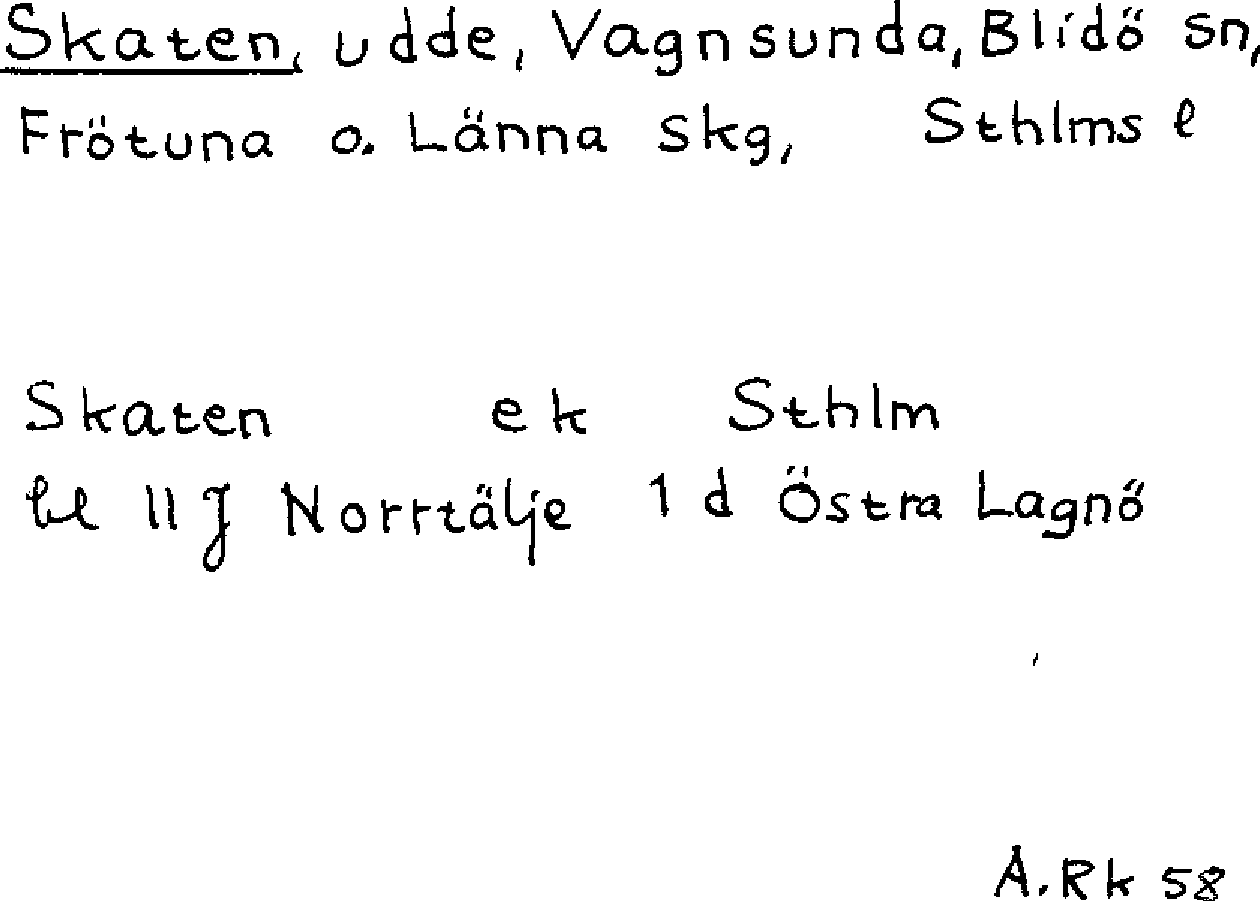 Skaten, udde, Vagnsunda, Blidö sn,
Frötuna o. Länna skg, Sthlms l
Skaten ek Sthlm
bl 11 J Norrtälje 1 d Östra Lagnö
A.Rk 58